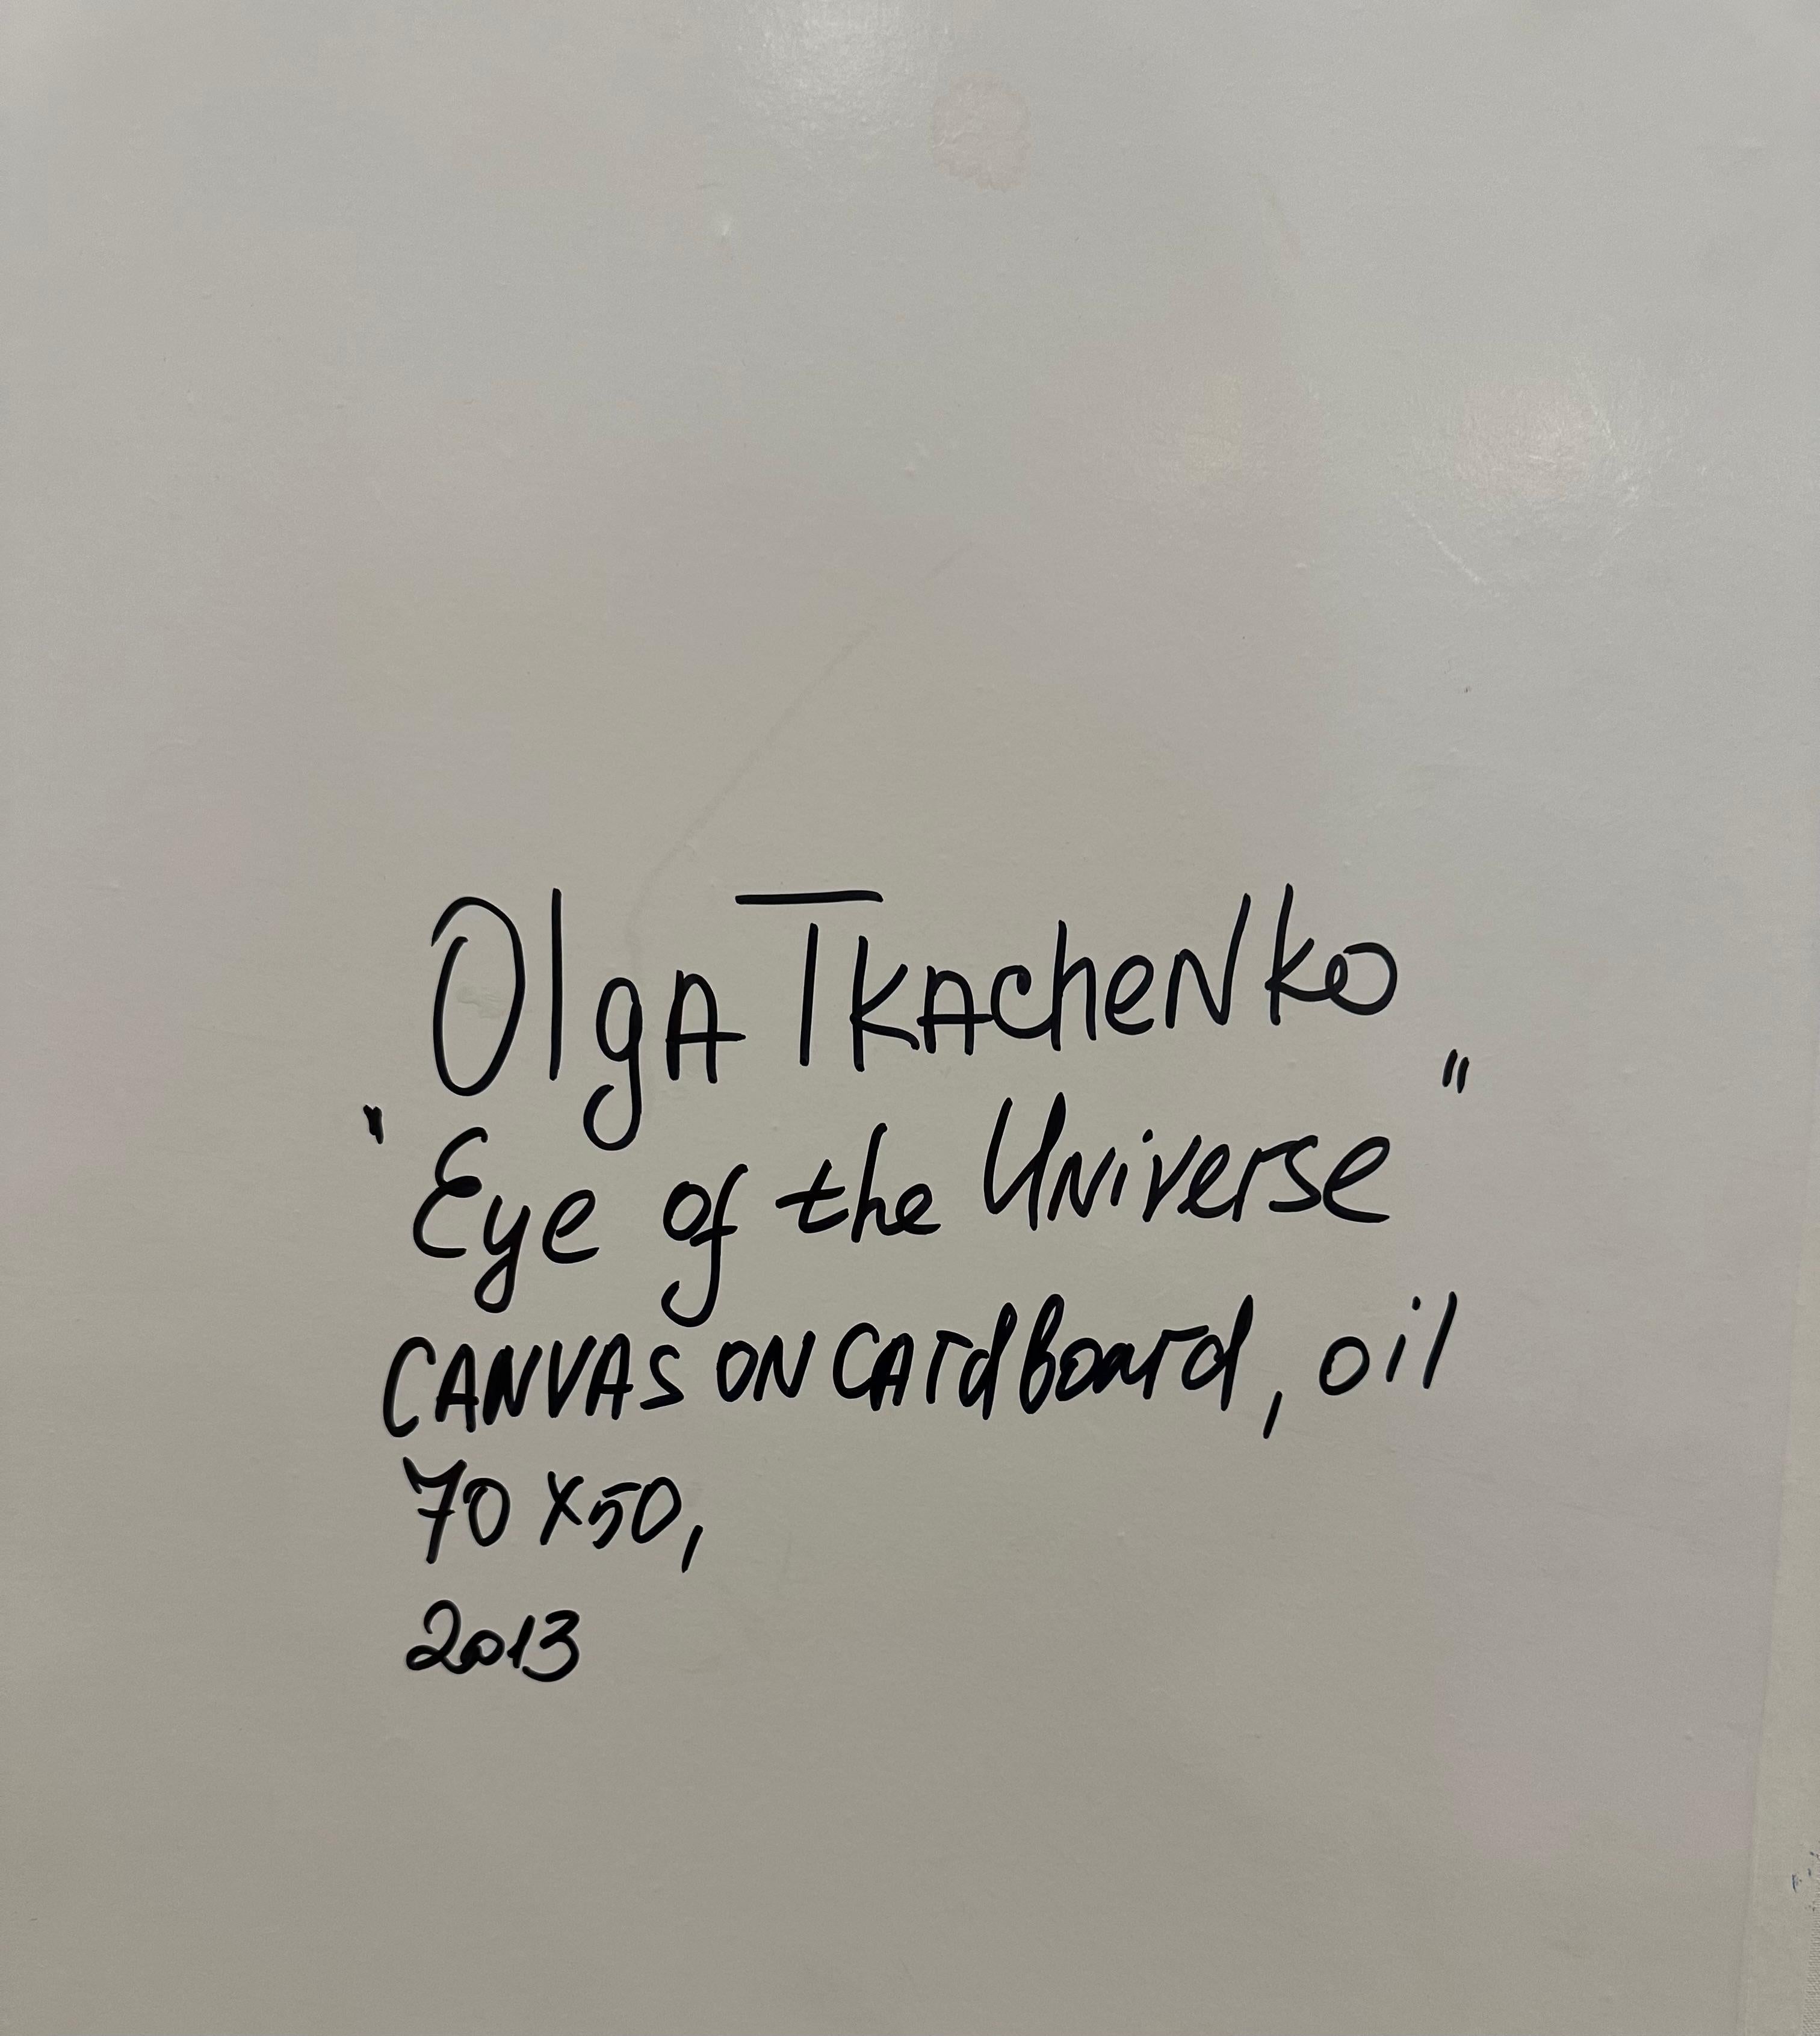 Olga Tkachenko
"Eye of the Universe"
CANVAS ON CArdboard, oil
70 x 50,
2013